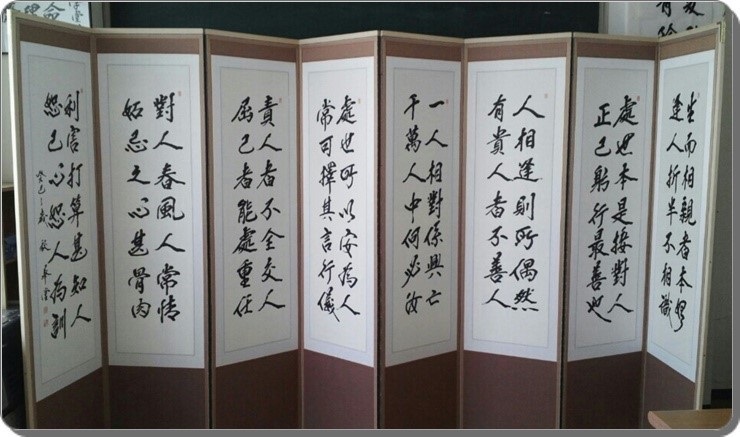 生而相親者本
逢人折半不相識
處世本是接對人
正己躬行最善也
人相逢則所偶然
有貴人者不善人
一人相對係興亡
千萬人中何必汝
處世所以安為人
常可擇其言行儀
責人者不全交人
屈己者能處重任
對人春風人常情
妬忌之心甚骨肉
利害打算甚知人
恕己心恕人為訓
癸巳之歲